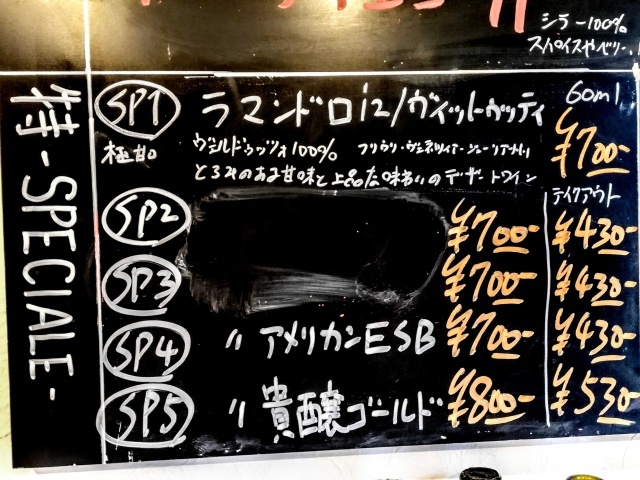 シラー100%
スパイスやベリー
特-SPECIALE-
SP1 ラマンドロ12/ヴィットヴッティ 60ml
極甘口 ヴェルドゥッツォ100% フリウリ・ヴェネツィア・ジューリア ¥700-
とろみのある甘味と上品な味わいのデザートワイン
テイクアウト
SP2 ¥700- ¥430-
SP3 ¥700- ¥430-
SP4 〃 アメリカンESB ¥700- ¥430-
SP5 〃 貴醸ゴールド ¥800- ¥530-